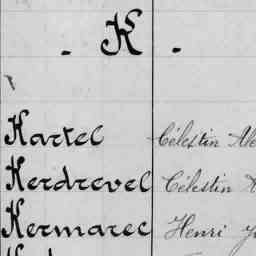 - K -
Kartel Célestin Ale
Kerdrevel Célestin
Kermarec Henri